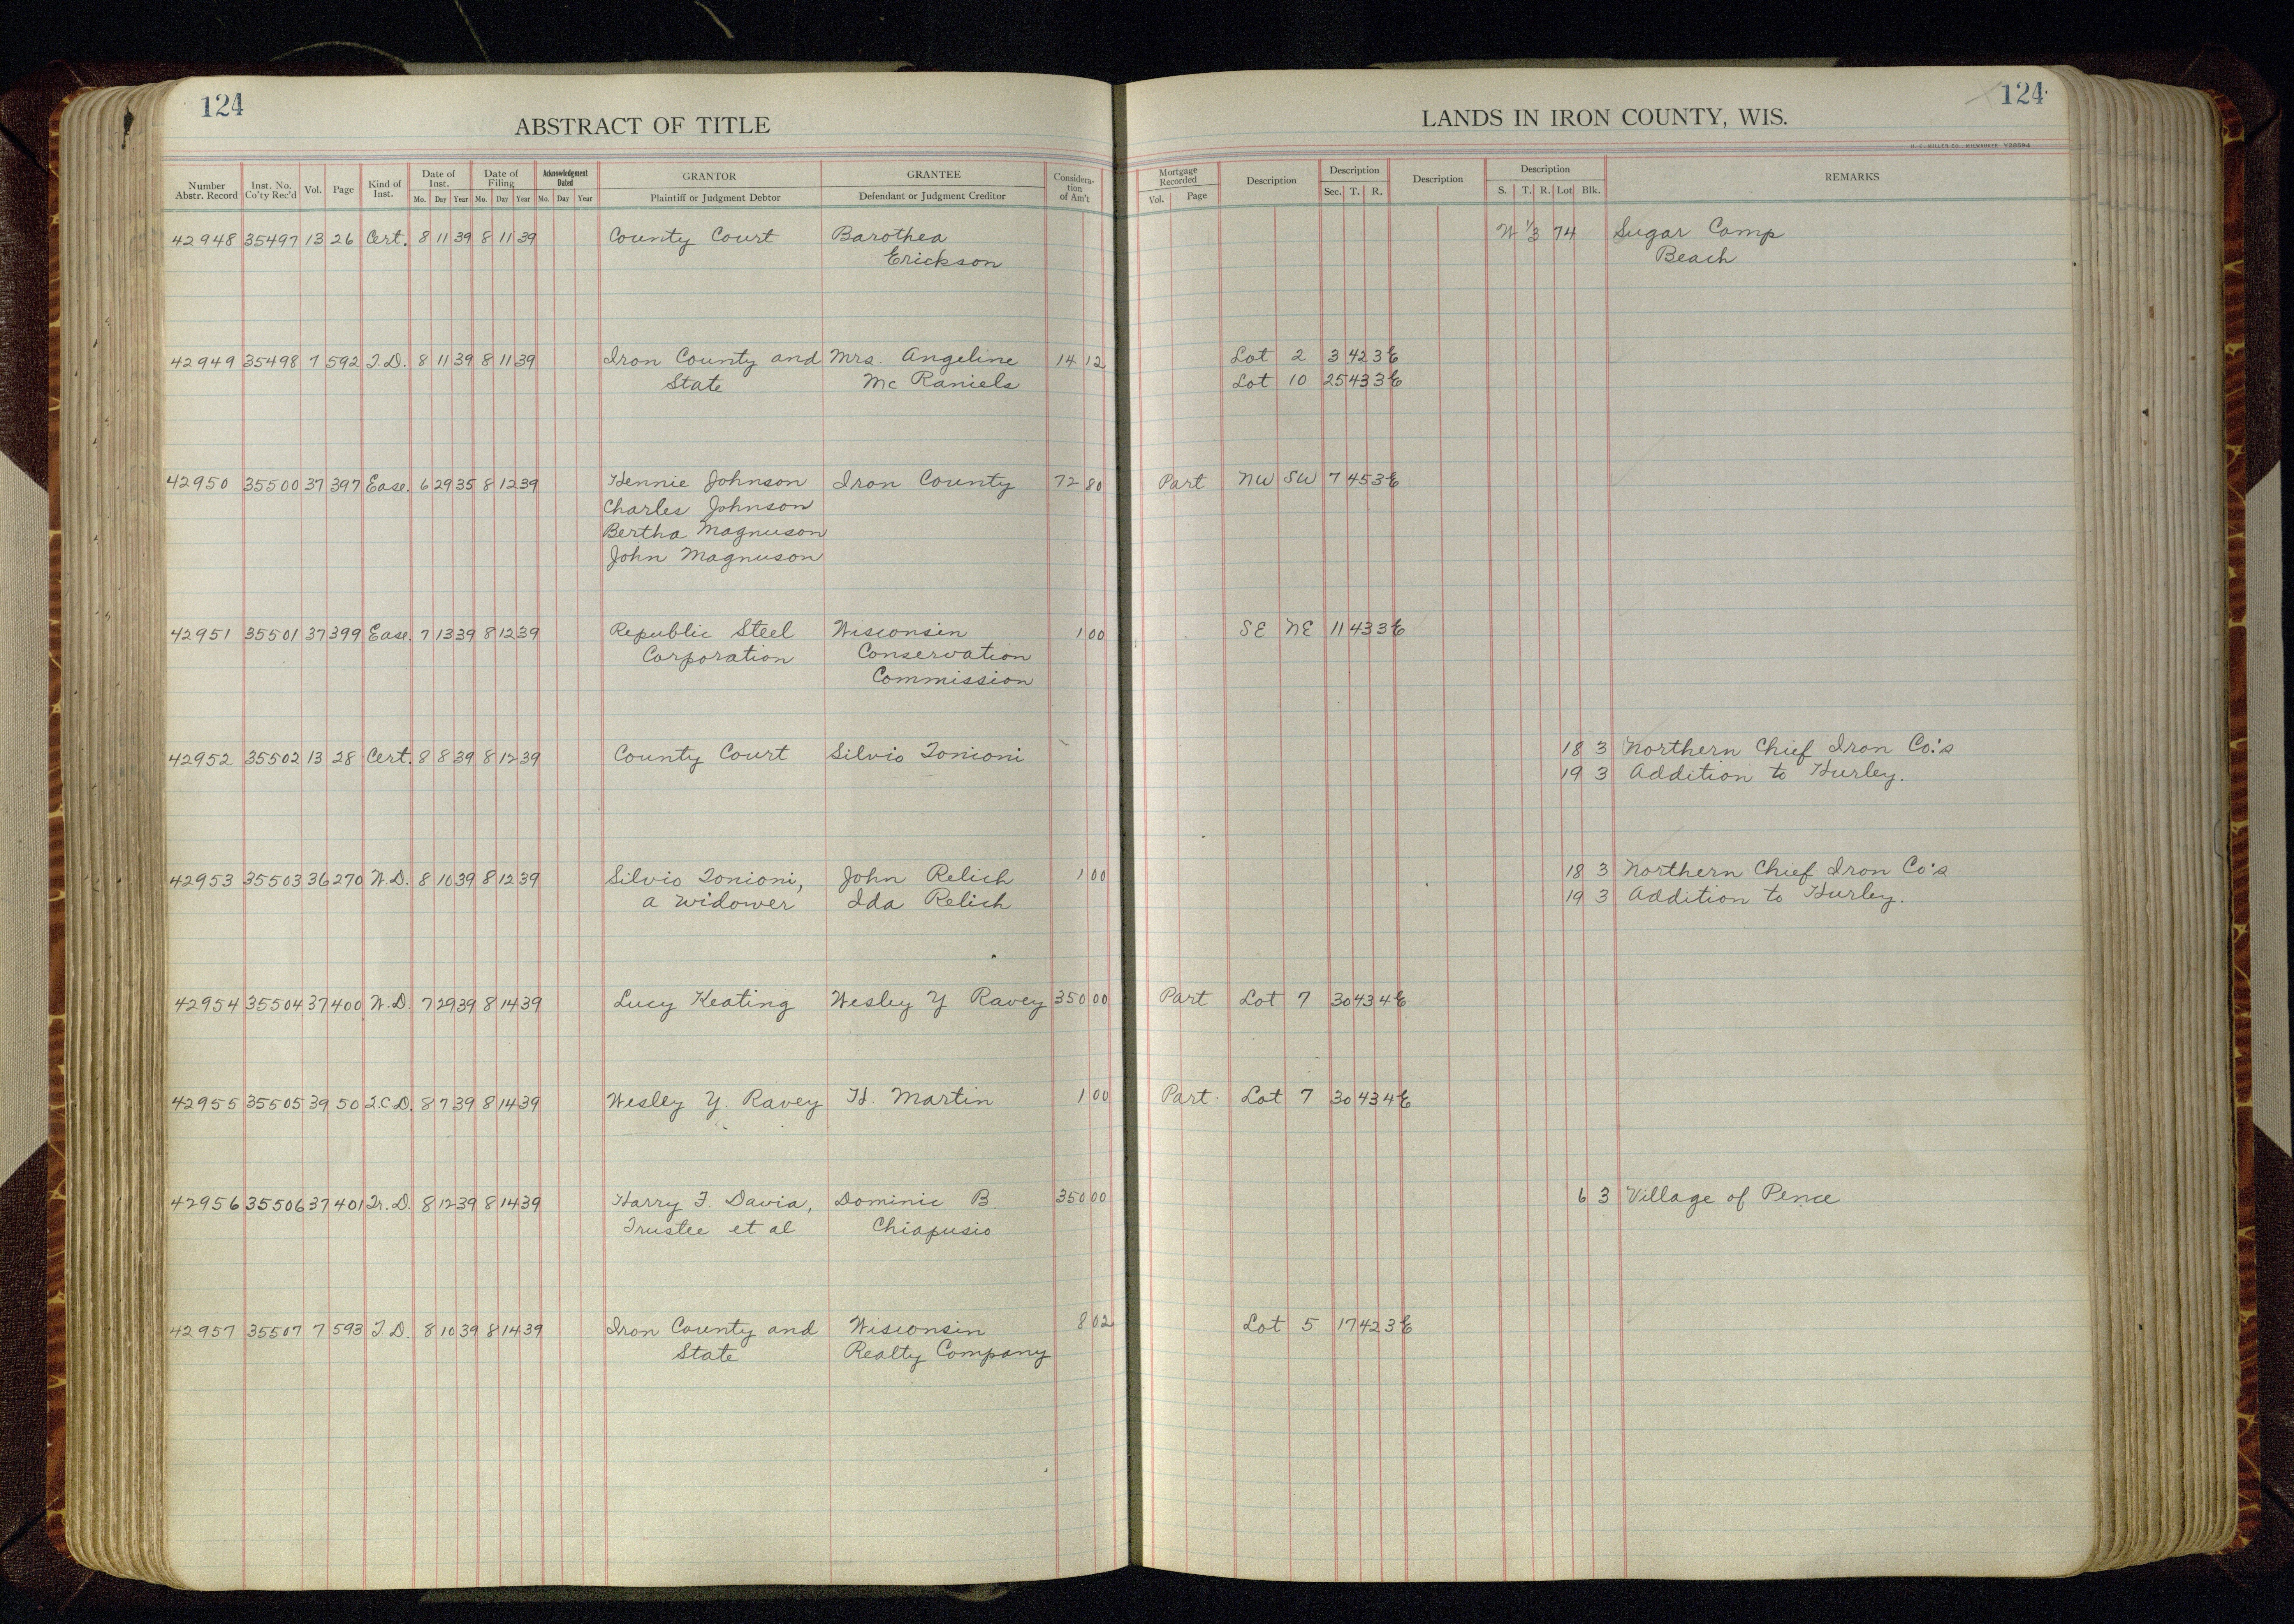 124
ABSTRACT OF TITLE
Number Abstr. Record Inst. No. Co'ty Rec'd Vol. Page Kind of Inst. Date of Inst. Mo. Day Year Date of Filing Mo. Day Year Acknowledgment Dated Mo. Day Year GRANTOR Plaintiff or Judgment Debtor GRANTEE Defendant or Judgment Creditor Considera-tion of Am't
42948 35497 13 26 Cert. 8 11 39 8 11 39 County Court Barothea
Erickson
42949 35498 7 592 T.D. 8 11 39 8 11 39 Iron County and Mrs. Angeline 14 12
State Mc Raniels
42950 35500 37 397 Ease. 6 29 35 8 12 39 Hennie Johnson Iron County 72 80
Charles Johnson
Bertha Magnuson
John Magnuson
42951 35501 37 399 Ease. 7 13 39 8 12 39 Republic Steel Wisconsin 1 00
Corporation Conservation
Commission
42952 35502 13 28 Cert. 8 8 39 8 12 39 County Court Silvio Tonioni
42953 35503 36 270 W.D. 8 10 39 8 12 39 Silvio Tonioni, John Relich 1 00
a widower Ida Relich
42954 35504 37 400 W.D. 7 29 39 8 14 39 Lucy Keating Wesley Y Ravey 350 00
42955 35505 39 50 Q.C.D. 8 7 39 8 14 39 Wesley Y. Ravey H. Martin 1 00
42956 35506 37 401 Tr. D. 8 12 39 8 14 39 Harry F. Davia, Dominic B. 350 00
Trustee et al Chiapusio
42957 35507 7 593 T.D. 8 10 39 8 14 39 Iron County and Wisconsin 8 02
State Realty Company
124
LANDS IN IRON COUNTY, WIS.
Mortgage Recorded Vol. Page Description Description Sec. T. R. Description Description S. T. R. Lot Blk. REMARKS
W 1/3 74 Sugar Camp
Beach
Lot 2 3 42 3E
Lot 10 25 43 3E
Part NW SW 7 45 3E
SE NE 11 43 3E
18 3 Northern Chief Iron Co.'s
19 3 Addition to Hurley.
18 3 Northern Chief Iron Co's
19 3 Addition to Hurley.
Part Lot 7 30 43 4E
Part. Lot 7 30 43 4E
6 3 Village of Pence
Lot 5 17 42 3E